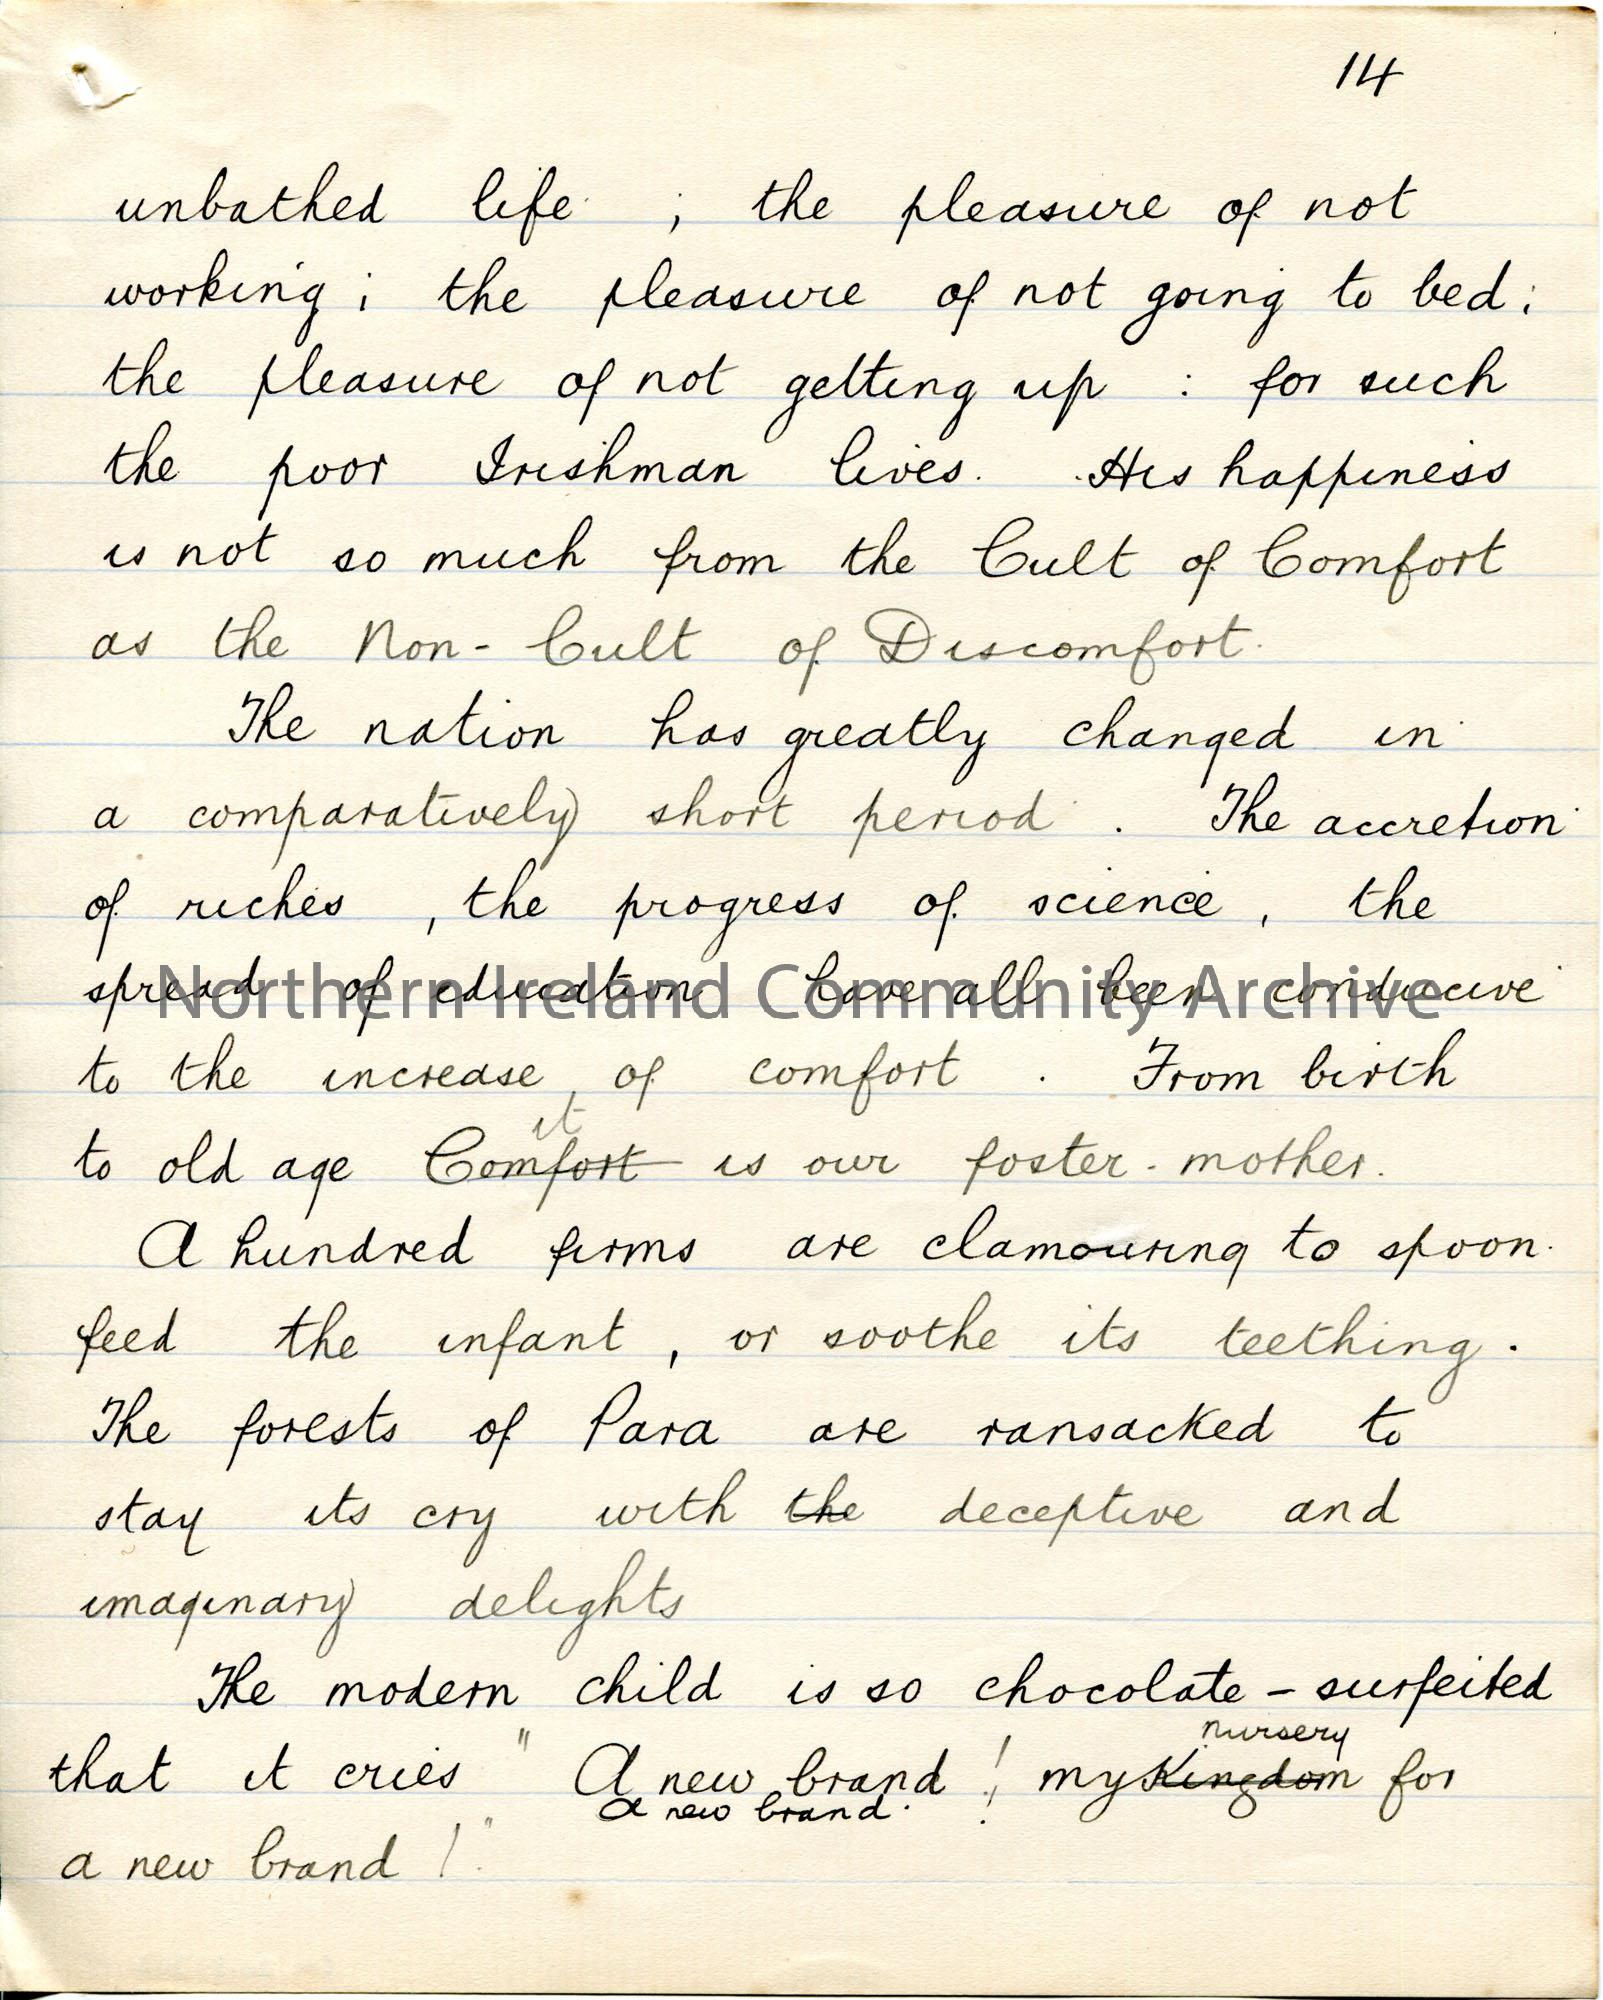 14
unbathed life ; the pleasure of not
working ; the pleasure of not going to bed ;
the pleasure of not getting up : for such
the poor Irishman lives. His happiness
is not so much from the Cult of Comfort
as the Non-Cult of Discomfort.
The nation has greatly changed in
a comparatively short period . The accretion
of riches , the progress of science , the
spread of education have all been conducive
Northern Ireland Community Archive
to the increase of comfort . From birth
it
to old age Comfort is our foster-mother.
A hundred firms are clamouring to spoon-
feed the infant , or soothe its teething .
The forests of Para are ransacked to
stay its cry with the deceptive and
imaginary delights
The modern child is so chocolate-surfeited
nursery
that it cries " A new brand ! my Kingdom for
a new brand !
a new brand ! "